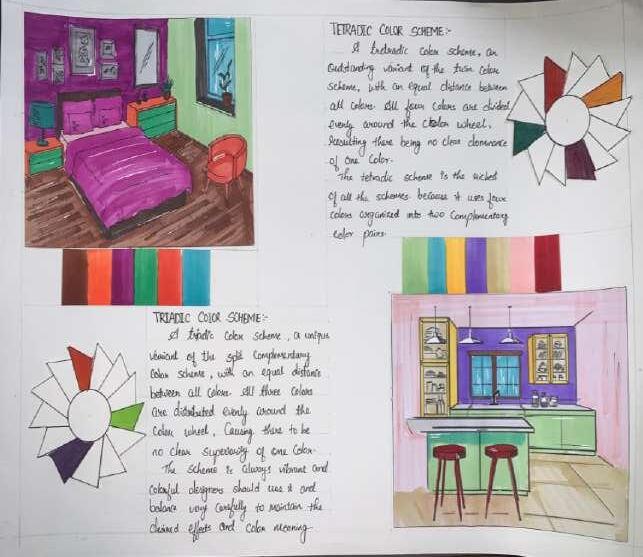 TETRADIC COLOR SCHEME:-
A tretradic color scheme, an
Outstanding variant of the twin color
scheme, with an equal distance between
all colors. All four colors are divided
evenly around the Color wheel,
Resulting there being no clear dominance
of one Color.
The tetradic scheme is the richest
of all the schemes because it uses four
colors organized into two Complementary
color pairs.
TRIADIC COLOR SCHEME:-
A triadic Color scheme, a unique
variant of the split Complementary
Color scheme, with an equal distance
between all colors. All three colors
are distributed evenly around the
Color wheel, Causing there to be
no clear superiority of one color.
The scheme is always vibrant and
colorful designers should use it and
balance very carefully to maintain the
desired effects and Color meaning.